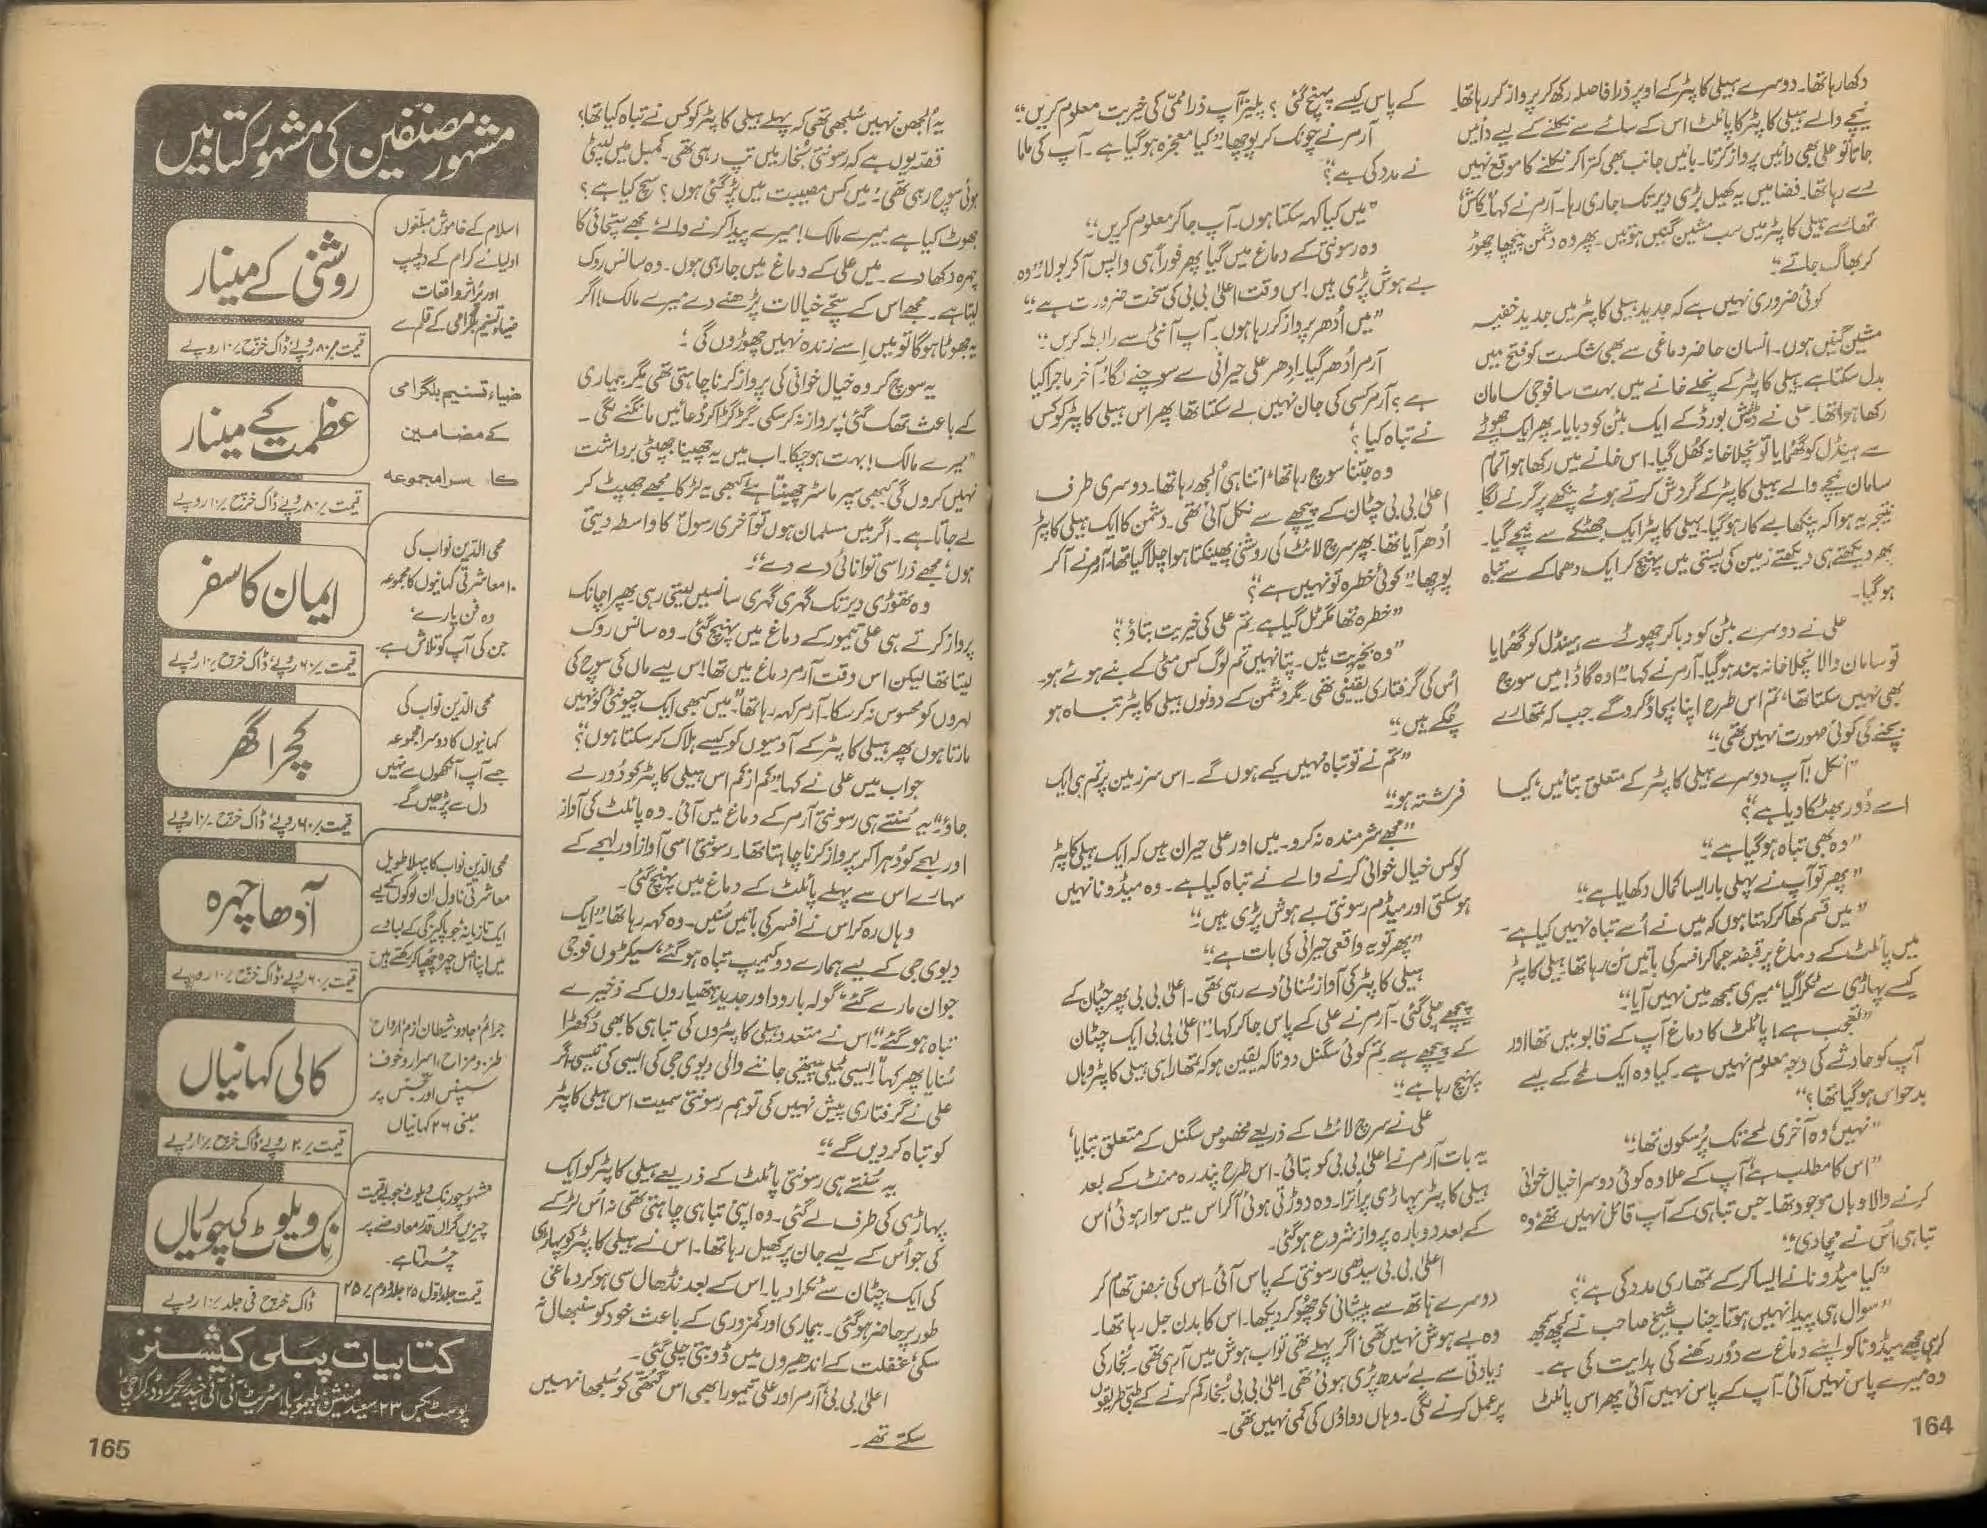 دکھا رہا تھا۔ دوسرے ہیلی کاپٹر کے اوپر ذرا فاصلہ رکھ کر پرواز کر رہا تھا۔
نیچے والے ہیلی کاپٹر کا پائلٹ اس کے سائے سے نکلنے کے لیے دائیں
جاتا تو علی بھی دائیں پرواز کرتا۔ بائیں جانب بھی کترا کر نکلنے کا موقع نہیں
دے رہا تھا۔ فضا میں یہ کھیل بڑی دیر تک جاری رہا۔ آرمر نے کہا "کاش
تمھارے ہیلی کاپٹر میں سب مشین گنیں ہوتیں۔ پھر وہ دشمن پیچھا چھوڑ
کر بھاگ جاتے"
کوئی ضروری نہیں ہے کہ جدید ہیلی کاپٹر میں جدید خفیہ
مشین گنیں ہوں۔ انسان حاضر دماغی سے بھی شکست کو فتح میں
بدل سکتا ہے۔ ہیلی کاپٹر کے نچلے خانے میں بہت سا فوجی سامان
رکھا ہوا تھا۔ علی نے ڈیش بورڈ کے ایک بٹن کو دبایا۔ پھر ایک چھوٹے
سے ہینڈل کو گھمایا تو نچلا خانہ کھل گیا۔ اس خانے میں رکھا ہوا تمام
سامان نیچے والے ہیلی کاپٹر کے گردش کرتے ہوئے پنکھے پر گرنے لگا۔
نتیجہ یہ ہوا کہ پنکھا بے کار ہو گیا۔ ہیلی کاپٹر ایک جھٹکے سے نیچے گیا۔
پھر دیکھتے ہی دیکھتے زمین کی پستی میں پہنچ کر ایک دھماکے سے تباہ
ہو گیا۔
علی نے دوسرے بٹن کو دبا کر چھوٹے سے ہینڈل کو گھمایا
تو سامان والا نچلا خانہ بند ہو گیا۔ آرمر نے کہا "اوہ گاڈ! میں سوچ
بھی نہیں سکتا تھا، تم اس طرح اپنا بچاؤ کرو گے جب کہ تمھارے
بچنے کی کوئی صورت نہیں تھی"
"انکل! آپ دوسرے ہیلی کاپٹر کے متعلق بتائیں، کیا
اسے دور بھٹکا دیا ہے؟"
"وہ بھی تباہ ہو گیا ہے"
"پھر تو آپ نے پہلی بار ایسا کمال دکھایا ہے"
"میں قسم کھا کر کہتا ہوں کہ میں نے اُسے تباہ نہیں کیا ہے۔
میں پائلٹ کے دماغ پر قبضہ جما کر افسر کی باتیں سُن رہا تھا۔ ہیلی کاپٹر
کیسے پہاڑی سے ٹکرا گیا، میری سمجھ میں نہیں آیا"
"تعجب ہے! پائلٹ کا دماغ آپ کے قابو میں تھا اور
آپ کو حادثے کی وجہ معلوم نہیں ہے۔ کیا وہ ایک لمحے کے لیے
بدحواس ہو گیا تھا؟"
"نہیں، وہ آخری لمحے تک پُرسکون تھا"
"اس کا مطلب ہے، آپ کے علاوہ کوئی دوسرا خیال خوانی
کرنے والا وہاں موجود تھا۔ جس تباہی کے آپ قائل نہیں تھے، وہ
تباہی اُس نے مچا دی"
"کیا میڈونا نے ایسا کر کے تمھاری مدد کی ہے؟"
"سوال ہی پیدا نہیں ہوتا۔ جناب شیخ صاحب نے کچھ سمجھ
کر ہی مجھے میڈونا کو اپنے دماغ سے دُور رکھنے کی ہدایت کی ہے۔
وہ میرے پاس نہیں آئی۔ آپ کے پاس نہیں آئی پھر اس پائلٹ
164
کے پاس کیسے پہنچ گئی؟ پلیز، آپ ذرا ممی کی خیریت معلوم کریں"
آرمر نے چونک کر پوچھا "کیا معجزہ ہو گیا ہے۔ آپ کی ماما
نے مدد کی ہے؟"
"میں کیا کہہ سکتا ہوں۔ آپ جا کر معلوم کریں"
وہ رسونتی کے دماغ میں گیا پھر فوراً ہی واپس آ کر بولا "وہ
بے ہوش پڑی ہیں اس وقت اعلیٰ بی بی کی سخت ضرورت ہے"
"میں اُدھر پرواز کر رہا ہوں۔ آپ آنٹی سے رابطہ کریں"
آرمر اُدھر گیا۔ ادھر علی حیرانی سے سوچنے لگا "آخر ماجرا کیا
ہے؟ آرمر کسی کی جان نہیں لے سکتا تھا پھر اس ہیلی کاپٹر کو کس
نے تباہ کیا؟
وہ جتنا سوچ رہا تھا، اتنا ہی الجھ رہا تھا۔ دوسری طرف
اعلیٰ بی بی چٹان کے پیچھے سے نکل آئی تھی۔ دشمن کا ایک ہیلی کاپٹر
اُدھر آیا تھا۔ پھر سرچ لائٹ کی روشنی پھینکتا ہوا چلا گیا تھا۔ آرمر نے آ کر
پوچھا "کوئی خطرہ تو نہیں ہے؟"
"خطرہ تھا مگر ٹل گیا ہے۔ تم علی کی خیریت بتاؤ؟"
"وہ بخیریت ہیں۔ پتا نہیں تم لوگ کس مٹی کے بنے ہوئے ہو۔
اُس کی گرفتاری یقینی تھی۔ مگر دشمن کے دونوں ہیلی کاپٹر تباہ ہو
چکے ہیں"
"تم نے تو تباہ نہیں کیے ہوں گے۔ اس سرزمین پر تم ہی ایک
فرشتہ ہو"
"مجھے شرمندہ نہ کرو۔ میں اور علی حیران ہیں کہ ایک ہیلی کاپٹر
کو کس خیال خوانی کرنے والے نے تباہ کیا ہے۔ وہ میڈونا نہیں
ہو سکتی اور میڈم رسونتی بے ہوش پڑی ہیں"
"پھر تو یہ واقعی حیرانی کی بات ہے"
ہیلی کاپٹر کی آواز سُنائی دے رہی تھی۔ اعلیٰ بی بی پھر چٹان کے
پیچھے چلی گئی۔ آرمر نے علی کے پاس جا کر کہا "اعلیٰ بی بی ایک چٹان
کے پیچھے ہے۔ تم کوئی سگنل دو تاکہ یقین ہو کہ تمھارا ہی ہیلی کاپٹر وہاں
پہنچ رہا ہے"
علی نے سرچ لائٹ کے ذریعے مخصوص سگنل کے متعلق بتایا،
یہ بات آرمر نے اعلیٰ بی بی کو بتائی۔ اس طرح پندرہ منٹ کے بعد
ہیلی کاپٹر پہاڑی پر اُترا۔ وہ دوڑتی ہوئی آ کر اس میں سوار ہوئی، اُس
کے بعد دوبارہ پرواز شروع ہو گئی۔
اعلیٰ بی بی سیدھی رسونتی کے پاس آئی۔ اس کی نبض تھام کر
دوسرے ہاتھ سے پیشانی کو چھو کر دیکھا۔ اس کا بدن جل رہا تھا۔
وہ بے ہوش نہیں تھی، اگر پہلے تھی تو اب ہوش میں آ رہی تھی۔ بُخار کی
زیادتی سے بے سُدھ پڑی ہوئی تھی۔ اعلیٰ بی بی بُخار کم کرنے کے طبی طریقوں
پر عمل کرنے لگی۔ وہاں دواؤں کی کمی نہیں تھی۔
یہ الجھن نہیں سُلجھی تھی کہ پہلے ہیلی کاپٹر کو کس نے تباہ کیا تھا؟
قصّہ یوں ہے کہ رسونتی بُخار میں تپ رہی تھی۔ کمبل میں لپٹی
ہوئی سوچ رہی تھی: "میں کس مصیبت میں پڑ گئی ہوں؟ سچ کیا ہے؟
جھوٹ کیا ہے۔ میرے مالک! میرے پیدا کرنے والے، مجھے سچائی کا
چہرہ دکھا دے۔ میں علی کے دماغ میں جا رہی ہوں۔ وہ سانس روک
لیتا ہے۔ مجھے اس کے سچے خیالات پڑھنے دے، میرے مالک! اگر
یہ جھوٹا ہوگا تو میں اِسے زندہ نہیں چھوڑوں گی؛
یہ سوچ کر وہ خیال خوانی کی پرواز کرنا چاہتی تھی مگر بیماری
کے باعث تھک گئی، پرواز نہ کر سکی۔ گڑگڑا کر دُعائیں مانگنے لگی۔
"میرے مالک! بہت ہو چکا۔ اب میں یہ چھینا جھپٹی برداشت
نہیں کروں گی، کبھی سپر ماسٹر چھینتا ہے، کبھی یہ لڑکا مجھے جھپٹ کر
لے جاتا ہے۔ اگر میں مسلمان ہوں تو آخری رسولؐ کا واسطہ دیتی
ہوں، مجھے ذرا سی توانائی دے دے"
وہ تھوڑی دیر تک گہری گہری سانسیں لیتی رہی پھر اچانک
پرواز کرتے ہی علی تیمور کے دماغ میں پہنچ گئی۔ وہ سانس روک
لیتا تھا لیکن اس وقت آرمر دماغ میں تھا اس لیے ماں کی سوچ کی
لہروں کو محسوس نہ کر سکا۔ آرمر کہہ رہا تھا "میں کبھی ایک چیونٹی کو نہیں
مارتا ہوں پھر ہیلی کاپٹر کے آدمیوں کو کیسے ہلاک کر سکتا ہوں؟"
جواب میں علی نے کہا "کم از کم اس ہیلی کاپٹر کو دُور لے
جاؤ" یہ سُنتے ہی رسونتی آرمر کے دماغ میں آئی۔ وہ پائلٹ کی آواز
اور لہجے کو دُہرا کر پرواز کرنا چاہتا تھا۔ رسونتی اسی آواز اور لہجے کے
سہارے اس سے پہلے پائلٹ کے دماغ میں پہنچ گئی۔
وہاں رہ کر اس نے افسر کی باتیں سُنیں۔ وہ کہہ رہا تھا "ایک
دیوی جی کے لیے ہمارے دو کیمپ تباہ ہو گئے، سیکڑوں فوجی
جوان مارے گئے، گولہ بارود اور جدید ہتھیاروں کے ذخیرے
تباہ ہو گئے" اُس نے متعدد ہیلی کاپٹروں کی تباہی کا بھی دُکھڑا
سُنایا پھر کہا "ایسی ٹیلی پیتھی جاننے والی دیوی جی کی ایسی کی تیسی، اگر
علی نے گرفتاری پیش نہیں کی تو ہم رسونتی سمیت اس ہیلی کاپٹر
کو تباہ کر دیں گے"
یہ سُنتے ہی رسونتی پائلٹ کے ذریعے ہیلی کاپٹر کو ایک
پہاڑی کی طرف لے گئی۔ وہ اپنی تباہی چاہتی تھی نہ اُس لڑکے
کی جو اُس کے لیے جان پر کھیل رہا تھا۔ اس نے ہیلی کاپٹر کو پہاڑی
کی ایک چٹان سے ٹکرا دیا۔ اس کے بعد نڈھال سی ہو کر دماغی
طور پر حاضر ہو گئی۔ بیماری اور کمزوری کے باعث خود کو سنبھال نہ
سکی، غفلت کے اندھیروں میں ڈوبتی چلی گئی۔
اعلیٰ بی بی، آرمر اور علی تیمور ابھی اس گتھی کو سُلجھا نہیں
سکتے تھے۔
مشہور مصنّفین کی مشہور کتابیں
اسلام کے خاموش مبلغوں
اولیائے کرام کے دلچسپ
اور پُر اثر واقعات
ضیاء تسنیم بلگرامی کے قلم سے
روشنی کے مینار
قیمت ۸۰ روپے، ڈاک خرچ ۱۰ روپے
ضیاء تسنیم بلگرامی
کے مضامین
کا دوسرا مجموعہ
عظمت کے مینار
قیمت ۸۰ روپے، ڈاک خرچ ۱۰ روپے
محی الدین نواب کی
۱۰ معاشرتی کہانیوں کا مجموعہ
وہ فن پارے،
جن کی آپ کو تلاش ہے۔
ایمان کا سفر
قیمت ۶۰ روپے، ڈاک خرچ ۱۰ روپے
محی الدین نواب کی
کہانیوں کا دوسرا مجموعہ
جسے آپ آنکھوں سے نہیں
دل سے پڑھیں گے۔
کچرا گھر
قیمت ۶۰ روپے، ڈاک خرچ ۱۰ روپے
محی الدین نواب کا پہلا طویل
معاشرتی ناول، ان لوگوں کے لیے
ایک تازیانہ جو پاکیزگی کے لبادے
میں اپنا اصل چہرہ چھپا کر رکھتے ہیں
آدھا چہرہ
قیمت ۶۰ روپے، ڈاک خرچ ۱۰ روپے
جرائم، جادو، شیطان ازم، ارواح،
طنز و مزاح، اسرار و خوف،
سسپنس اور تجسّس پر
مبنی ۲۶ کہانیاں
کالی کہانیاں
قیمت ۲۰ روپے، ڈاک خرچ ۱۰ روپے
مشہور چور نک ویلوٹ جو بے قیمت
چیزیں گراں قدر معاوضے پر
چُراتا ہے۔
قیمت جلد اوّل ۲۵ جلد دوم ۲۵
نک ویلوٹ کی چوریاں
ڈاک خرچ فی جلد ۱۰ روپے
کتابیات پبلی کیشنز
پوسٹ بکس ۲۳ سعید مینشن بلیموریا اسٹریٹ آئی آئی چندریگر روڈ کراچی
165